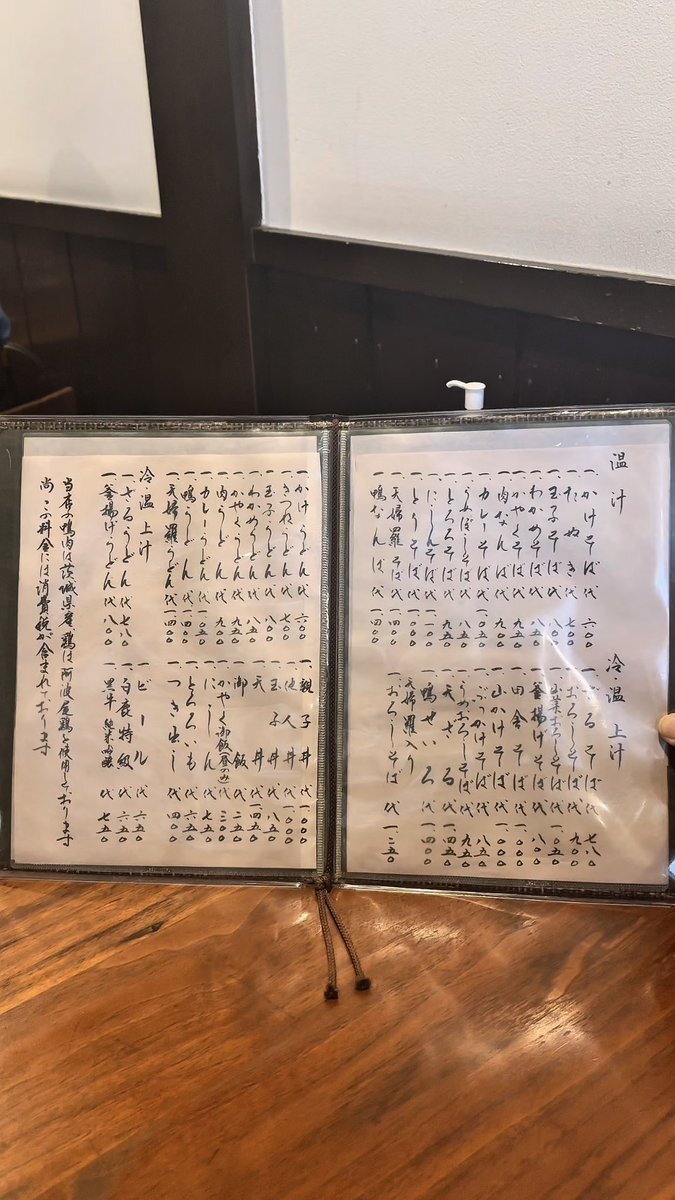 温汁
一、かけそば 代 六〇〇
一、たぬき 代 七〇〇
一、玉子そば 代 八五〇
一、わかめそば 代 八五〇
一、かやくそば 代 九五〇
一、肉なんば 代 九〇〇
一、カレーそば 代 一、〇五〇
一、うめぼしそば 代
一、とろろそば 代 九五〇
一、にしんそば 代 一、一〇〇
一、とりそば 代
一、天婦羅そば 代 一、四〇〇
一、鴨なんば 代 一、四〇〇
冷温上汁
一、ざるそば 代 七八〇
一、おろしそば 代 九〇〇
一、山菜おろしそば 代 一、〇五〇
一、釜揚げそば 代 八〇〇
一、田舎そば 代 一、〇〇〇
一、山かけそば 代 一、〇〇〇
一、ぶっかけそば 代 八五〇
一、うめおろしそば 代 九五〇
一、天ざる 代 一、四五〇
一、鴨せいろ 代 一、四〇〇
天婦羅入り
一、おろしそば 代 一、三五〇
一、かけうどん 代 六〇〇
一、きつねうどん 代 七〇〇
一、玉子うどん 代 八五〇
一、わかめうどん 代 八五〇
一、かやくうどん 代 九五〇
一、肉うどん 代 九〇〇
一、カレーうどん 代 一、〇五〇
一、鴨うどん 代 一、四〇〇
一、天婦羅うどん 代 一、四〇〇
冷温上汁
一、ざるうどん 代 七八〇
一、釜揚げうどん 代 八〇〇
一、親子丼 代 一、〇〇〇
一、他人丼 代 一、〇〇〇
一、玉子丼 代 八五〇
一、天丼 代 一、四五〇
一、御飯 代 二五〇
一、かやく御飯(昼のみ) 代 三〇〇
一、にしん 代 七五〇
一、とろろいも 代 四五〇
一、つき出し 代 四〇〇
一、ビール 代 六五〇
一、白鹿特級 代 六五〇
一、黒牛 純米吟醸 代 七五〇
当店の鴨肉は茨城県産鶏は阿波尾鶏を使用しております
尚、この料金には消費税が含まれております